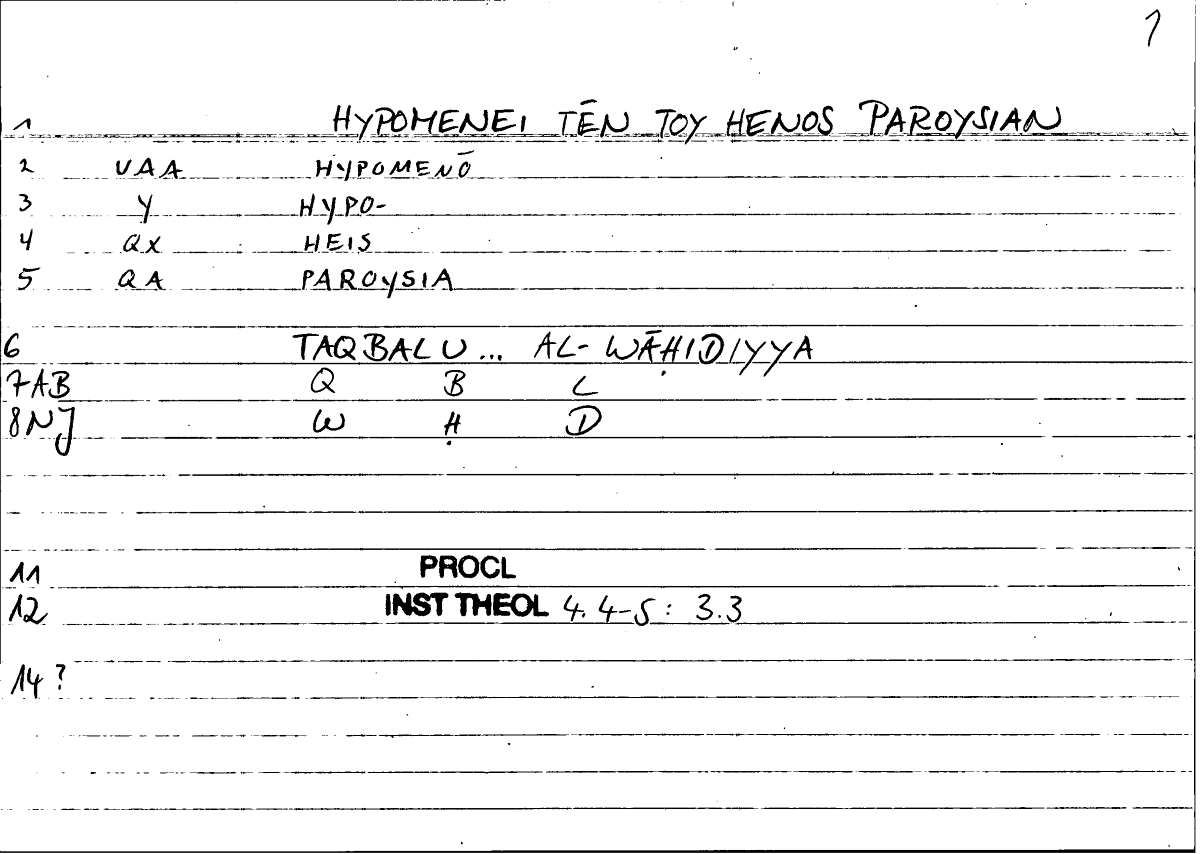 1
1 HYPOMENEI TĒN TOY HENOS PAROYSIAN
2 VAA HYPOMENŌ
3 Y HYPO-
4 QX HEIS
5 QA PAROYSIA
6 TAQBALU... AL-WĀḤIDIYYA
7AB Q B L
8NJ W Ḥ D
11 PROCL
12 INST THEOL 4.4-5: 3.3
14?